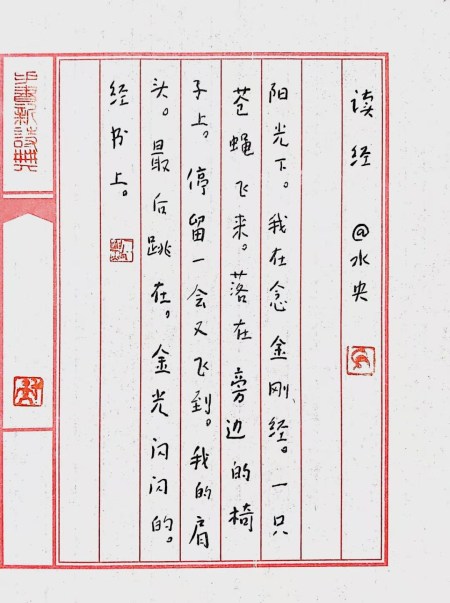 读经 @水央
阳光下。我在念金刚经。一只
苍蝇飞来。落在旁边的椅
子上。停留一会又飞到。我的肩
头。最后跳在。金光闪闪的。
经书上。